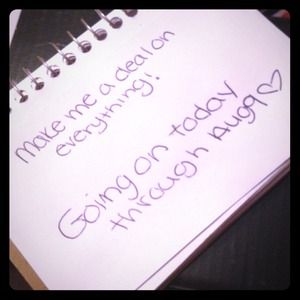 Make me a deal on
everything!
Going on today
through Aug9♡